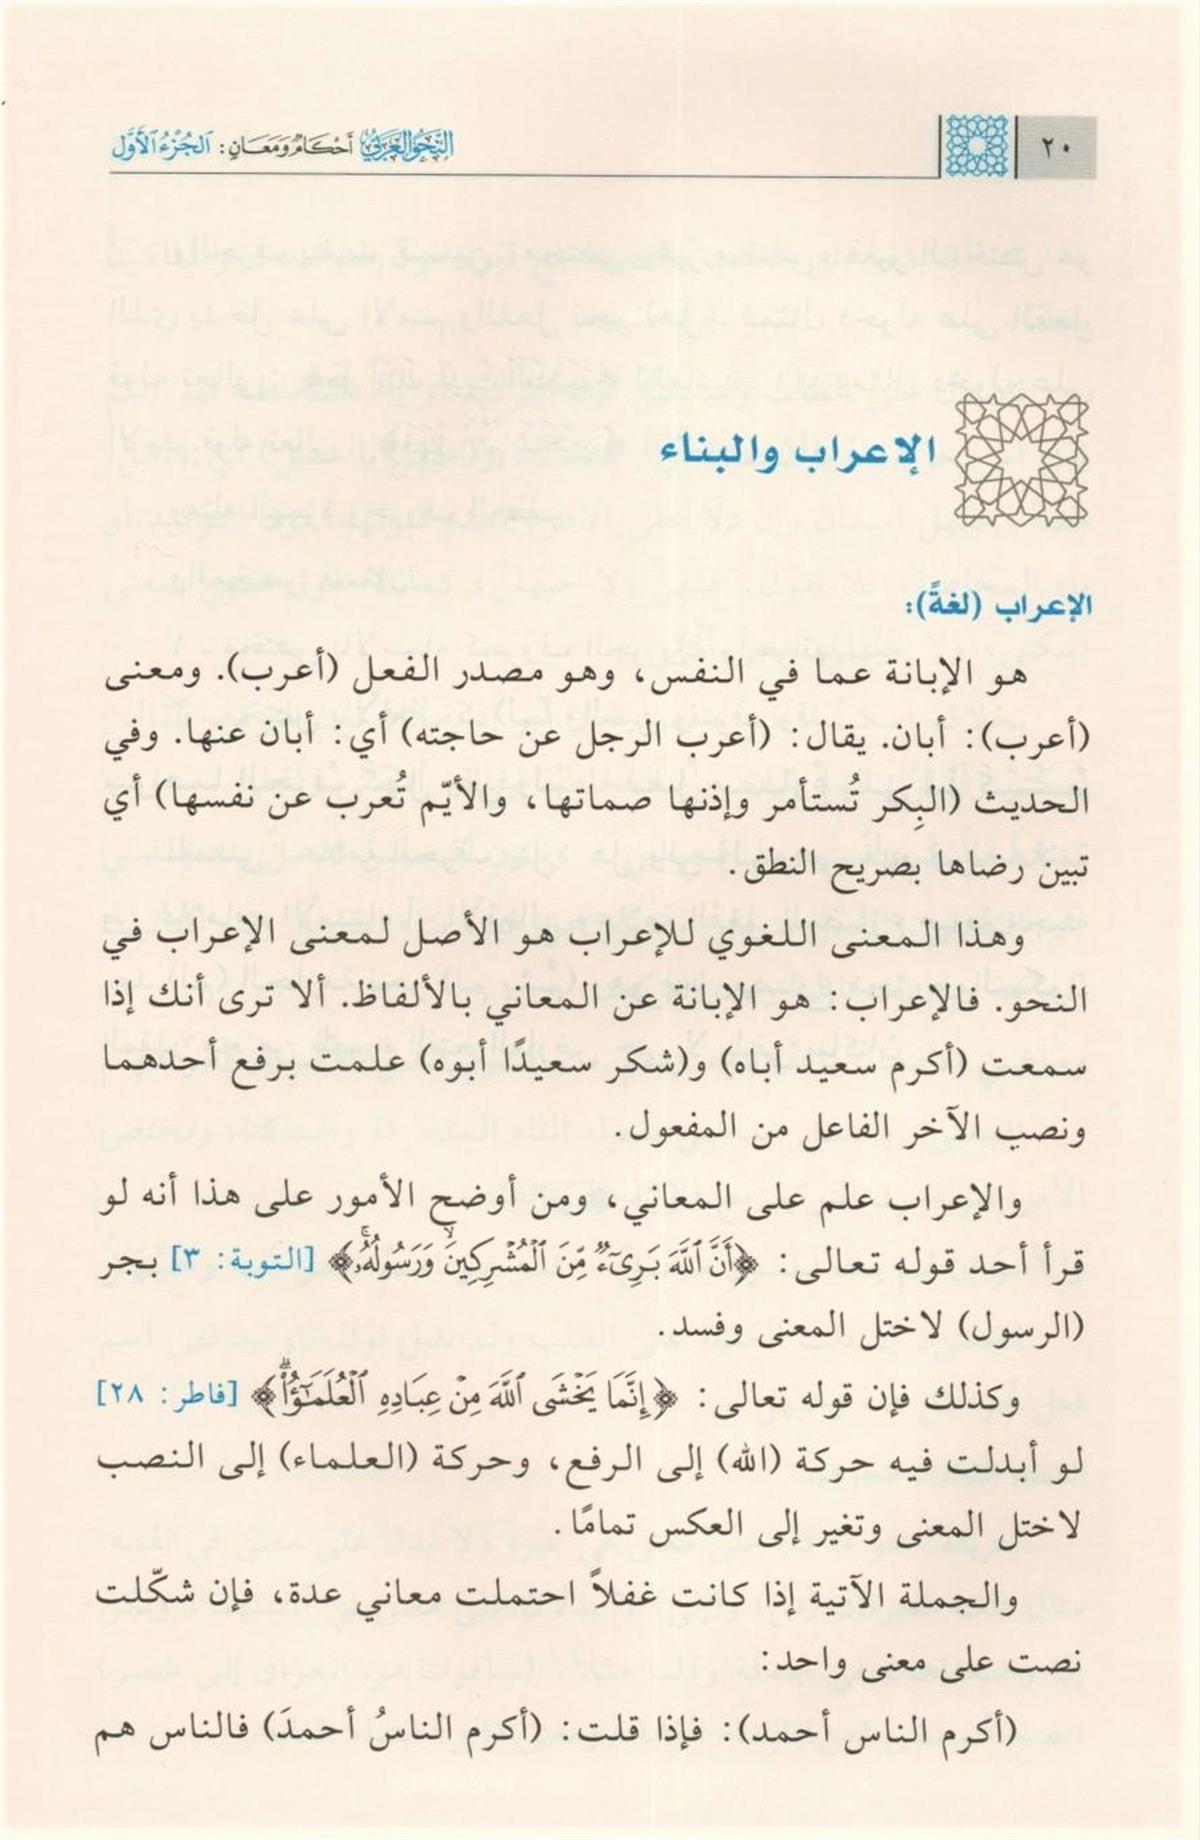 ٢٠
النحو العربي أحكام ومعان: الجزء الأول
الإعراب والبناء
الإعراب (لغةً):
هو الإبانة عما في النفس، وهو مصدر الفعل (أعرب). ومعنى
(أعرب): أبان. يقال: (أعرب الرجل عن حاجته) أي: أبان عنها. وفي
الحديث (البِكر تُستأمر وإذنها صماتها، والأيّم تُعرب عن نفسها) أي
تبين رضاها بصريح النطق.
وهذا المعنى اللغوي للإعراب هو الأصل لمعنى الإعراب في
النحو. فالإعراب: هو الإبانة عن المعاني بالألفاظ. ألا ترى أنك إذا
سمعت (أكرم سعيد أباه) و(شكر سعيدًا أبوه) علمت برفع أحدهما
ونصب الآخر الفاعل من المفعول.
والإعراب علم على المعاني، ومن أوضح الأمور على هذا أنه لو
قرأ أحد قوله تعالى: ﴿أَنَّ ٱللَّهَ بَرِىٓءٌ مِّنَ ٱلْمُشْرِكِينَ ۙ وَرَسُولُهُۥ ۚ﴾ [التوبة: ٣] بجر
(الرسول) لاختل المعنى وفسد.
وكذلك فإن قوله تعالى: ﴿إِنَّمَا يَخْشَى ٱللَّهَ مِنْ عِبَادِهِ ٱلْعُلَمَـٰٓؤُا۟ ۗ﴾ [فاطر: ٢٨]
لو أبدلت فيه حركة (الله) إلى الرفع، وحركة (العلماء) إلى النصب
لاختل المعنى وتغير إلى العكس تمامًا.
والجملة الآتية إذا كانت غفلاً احتملت معاني عدة، فإن شكّلت
نصت على معنى واحد:
(أكرم الناس أحمد): فإذا قلت: (أكرم الناسُ أحمدَ) فالناس هم